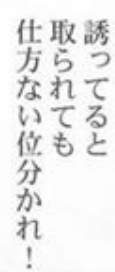 誘ってると
取られても
仕方ない位分かれ！